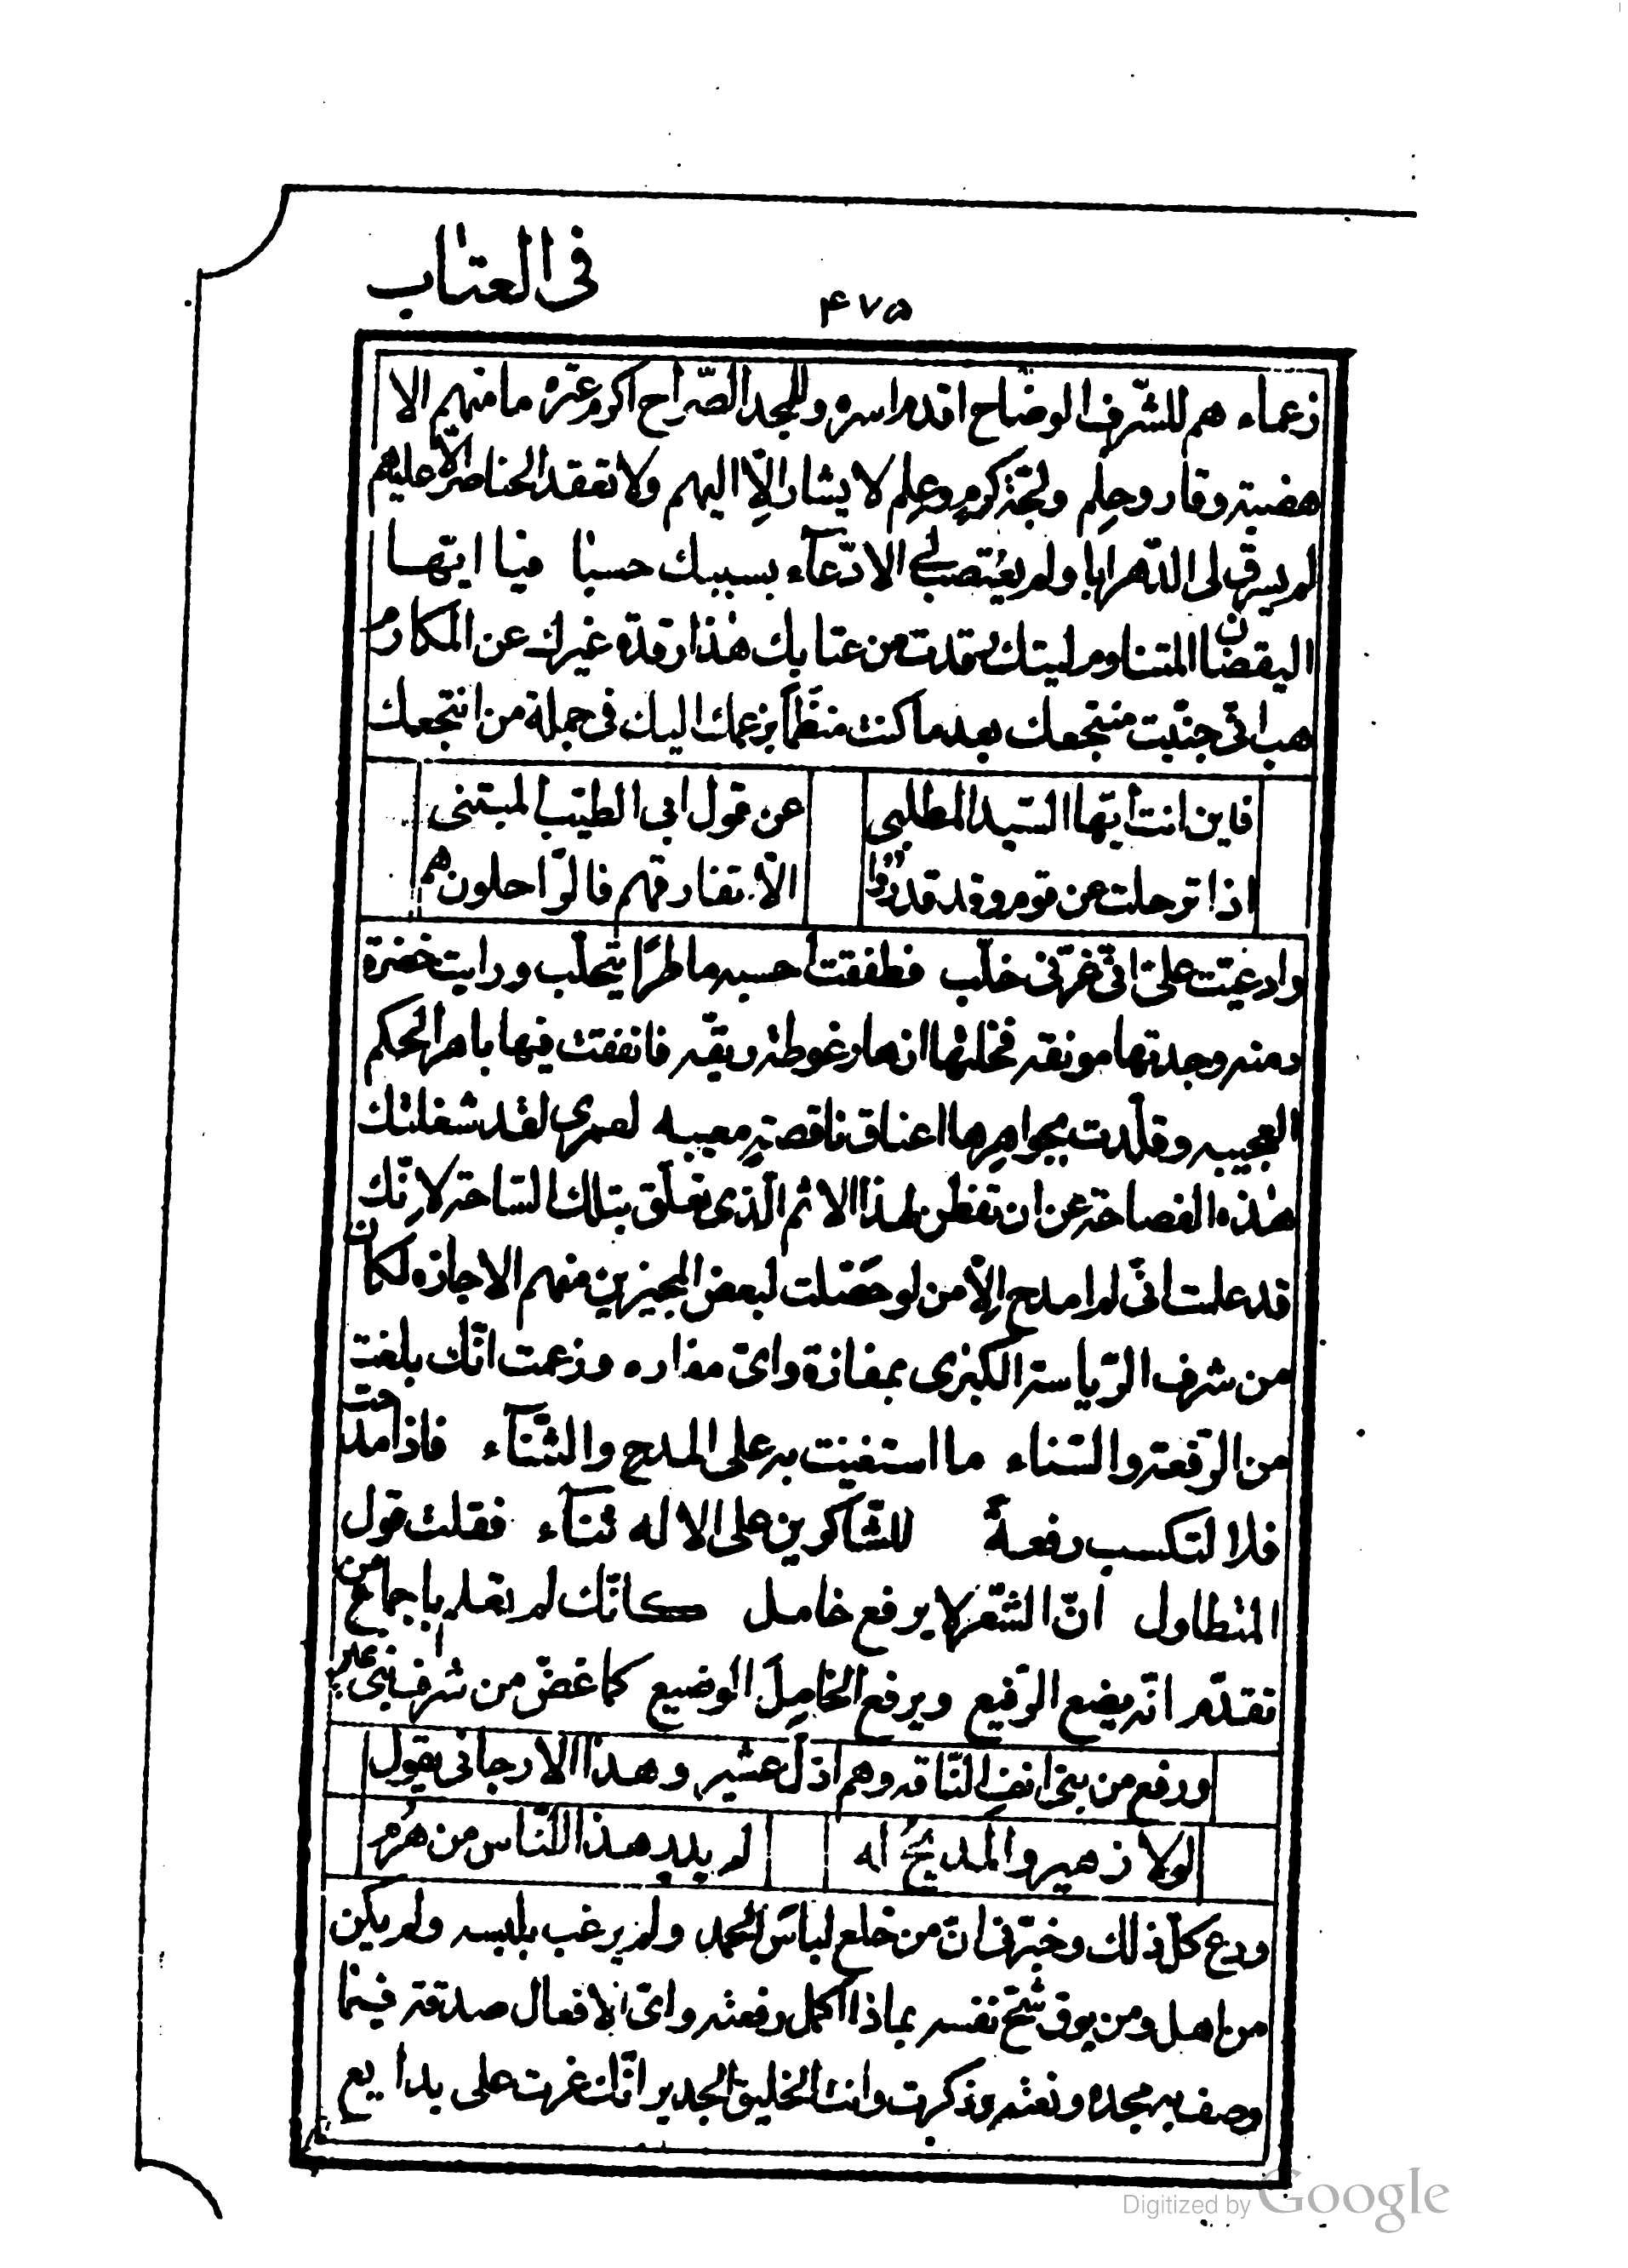 في العتاب
٤٧٥
زعماء هم للشّرف الوضاح اقدم اسره وللمجد الصّراح اكرم عترة ما منهم الا
هضبة وقار وحِلم ولجّة كرمٍ وعِلم لا يشار الّا اليهم ولا تعقد الخناصر الّا عليهم
لم يسرق لى الدّهر ابا ولم يغتصب لي الادّعآء بسببك حسبا فيا ايّها
اليقضان المتناوم ليتك رقدت من عتابك هٰذا رقدة غيرك عن المكارم
هب انّى جنّبت منتجعك بعد ما كنت منضمّا بزعمك اليك فى جملة من انتجعك
فاين انت أيّها السّيد المطلبي عن قول ابى الطيّب المتنبى
اذا ترحلت عن قوم وقد قدروا الّا تفارقهم فالرّاحلون هم
وادعيت علىّ انّى غرّنى خلّب فطفقت أحسبه ماطرًا يتحلّب ورايت خضرة
دمنه وجدتها مونقه فخلتها ازهار غوطة ريقّه فانفقت فيها باهر الحكم
العجيبه وقلّدت بجواهرها اعناق ناقصةٍ معيبه لعمرى لقد شغلتك
هٰذه الفصاحة عن ان تفطن لهذا الاثم الّذى تعلّق بتلك السّاحة لانّك
قد علمت انّى لم امدح الّا من لو حصّلت لبعض المجيزين منهم الاجازه لكان
من شرف الرّياسة الكبرى بمفازة واىّ مفازه وزعمت انّك بلغت
من الرّفعة والسّناء ما استغنيت به على المدح والثّنآء فاذا مدحت
فلا لتكسب رفعةً للشّاكرين على الاله ثنآء فقلت قول
المتطاول انّ الشّعر لا يرفع خامل كانّك لم تعلم باجماع من
تقدّم انّه يضع الرّفيع ويرفع الخامِلَ الوضيع كما غضّ من شرف بنى نمير
ورفع من بنى انف النّاقه وهم اذلّ عشير وهذا الارجانى يقول
لولا زهير والمديحُ له لم يدر هذا النّاس من هَرِم
ودع كلّ ذلك وخبّرنى انّ من خلع لباسَ الحمد ولم يرغب بلبسه ولم يكن
من اهله ومن يوق شحّ نفسه بماذا اكمل رفعته واىّ الافعال صدقته فيما
وصف به مجده ونعته وذكرت وانت الخليق الجدير انّك غرت على بدايع